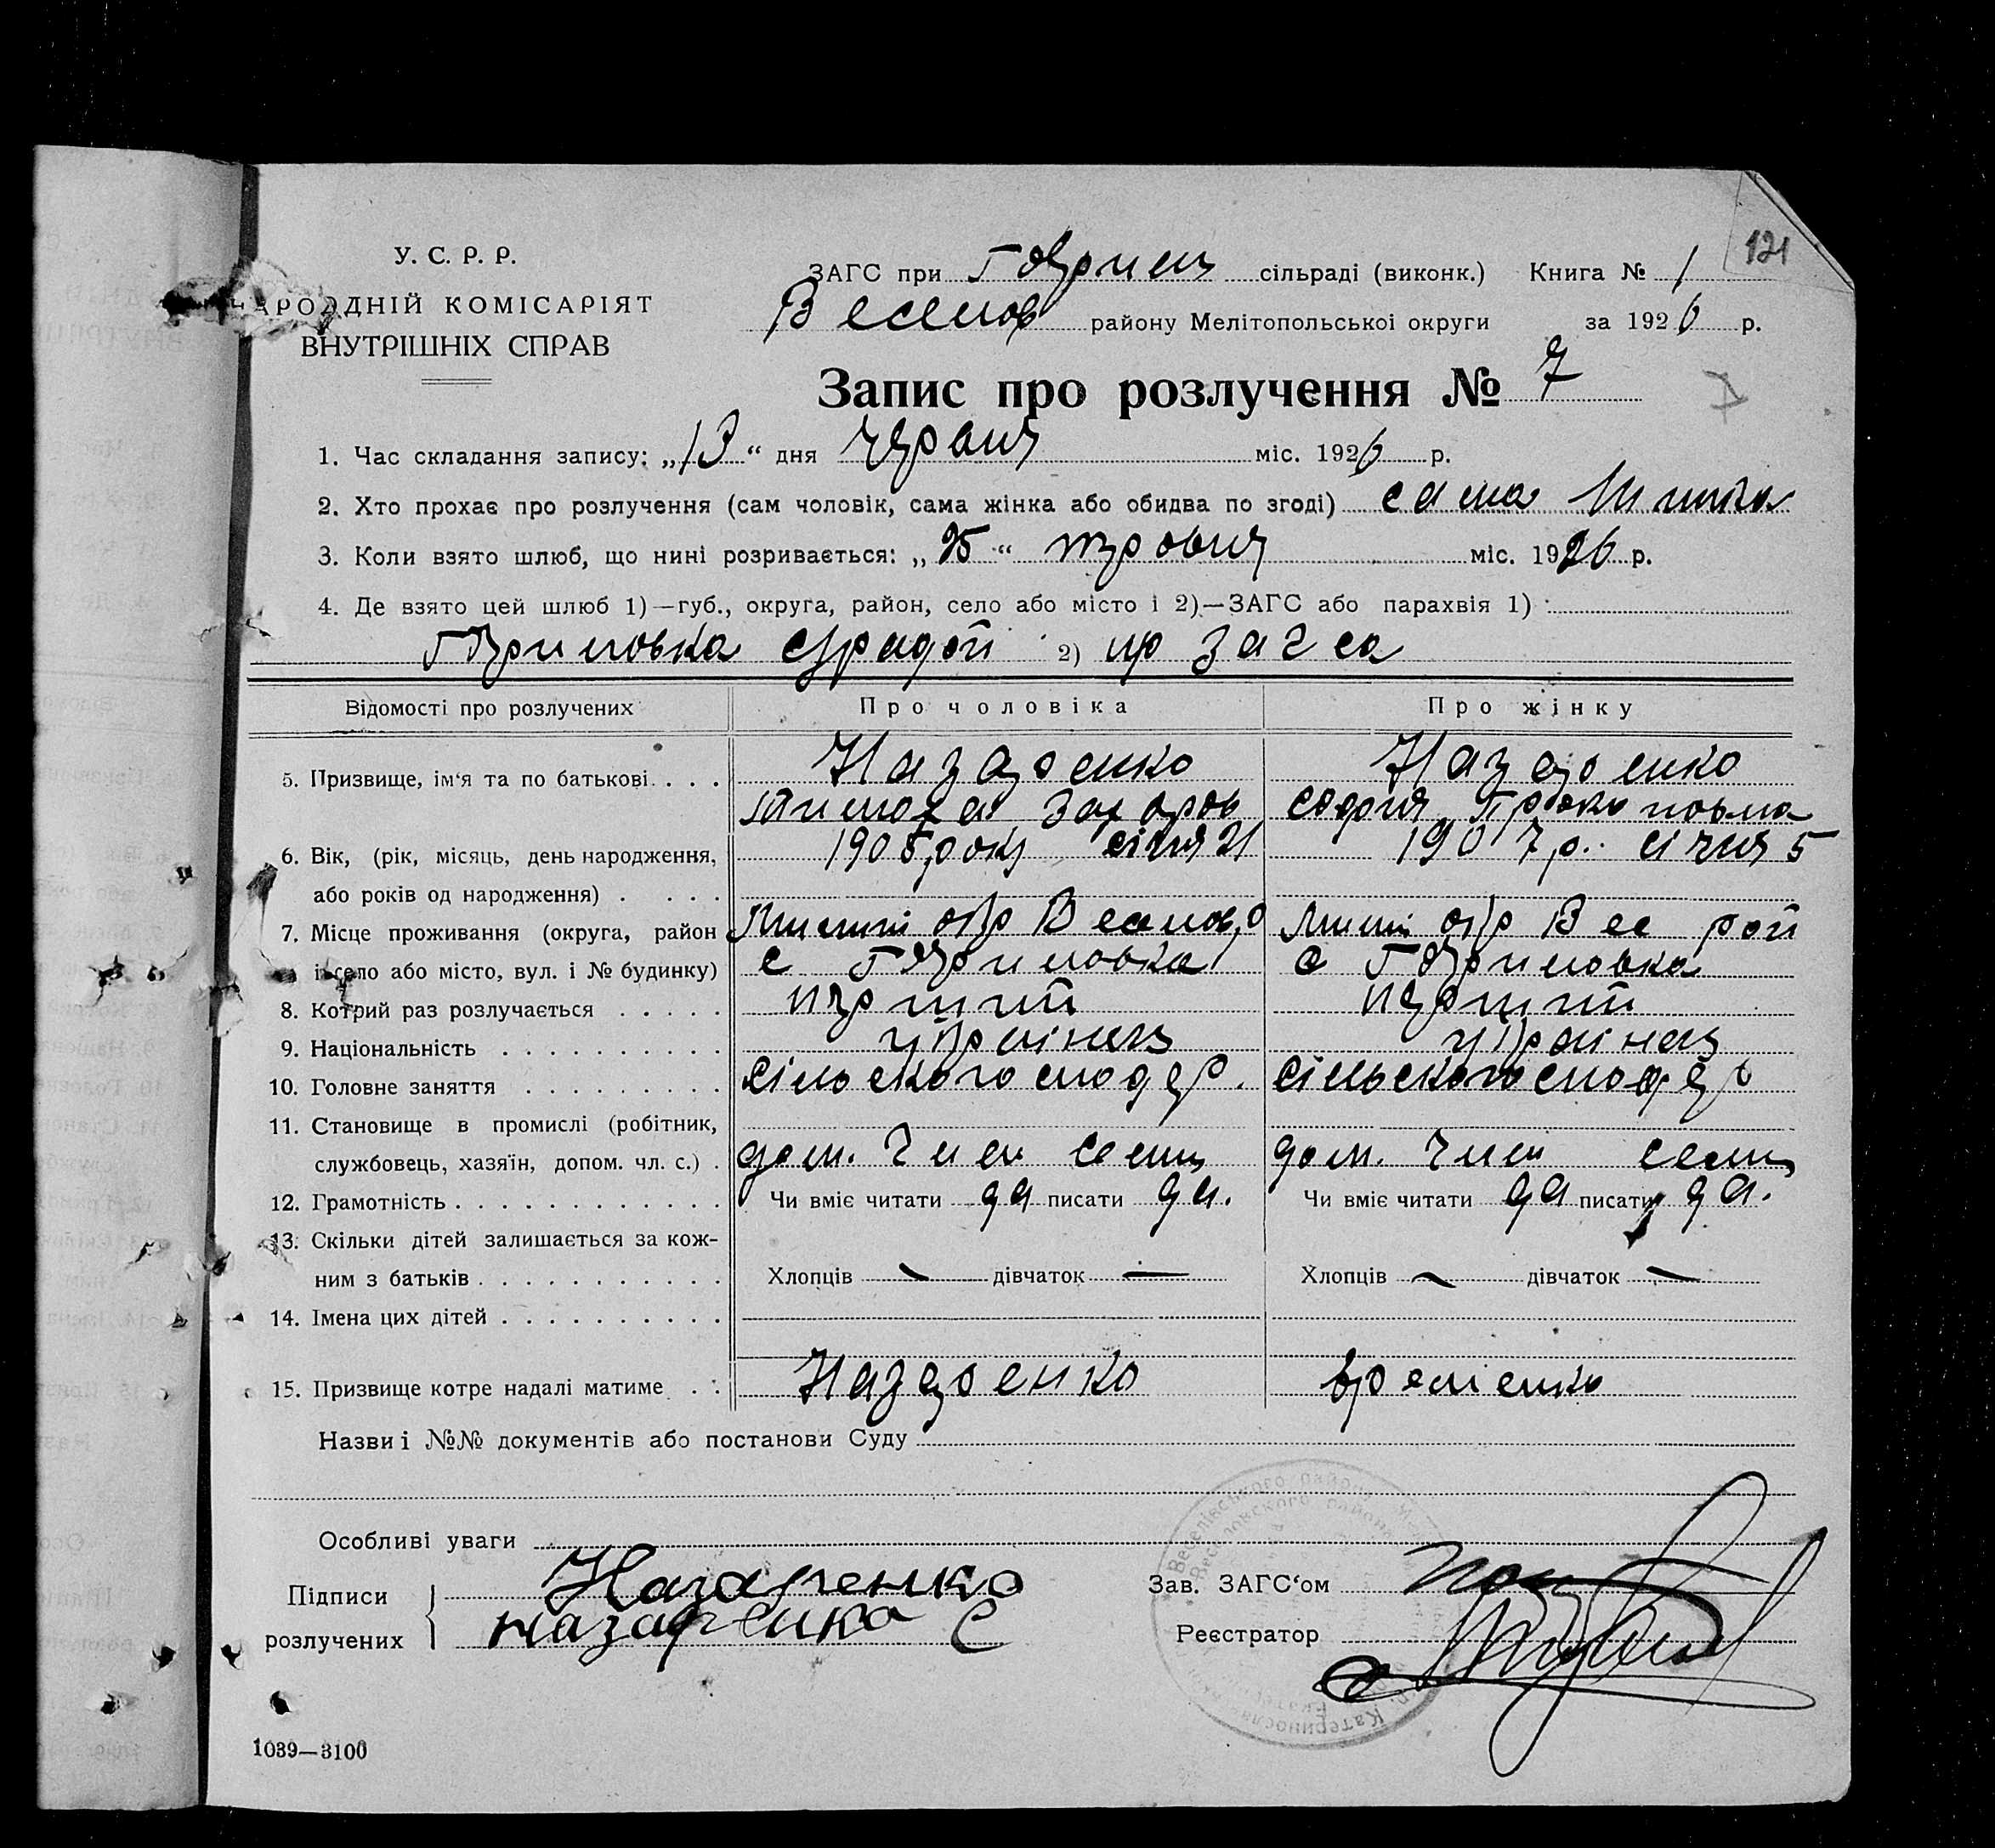 121
У. С. Р. Р.
НАРОДНІЙ КОМІСАРІЯТ
ВНУТРІШНІХ СПРАВ
ЗАГС при сільраді (виконк.) Книга № 1
Веселов району Мелітопольської округи за 1926 р.
Запис про розлучення № 7
7
1. Час складання запису: „13“ дня міс. 1926 р.
2. Хто прохає про розлучення (сам чоловік, сама жінка або обидва по згоді) сама жинка
3. Коли взято шлюб, що нині розривається: „25“ міс. 1926 р.
4. Де взято цей шлюб 1)—губ., округа, район, село або місто і 2)—ЗАГС або парахвія 1)
2) загса
Відомості про розлучених Про чоловіка Про жінку
5. Призвище, ім‘я та по батькові Назаренко Назаренко
тимоха Захаров софия Прокоповна
6. Вік, (рік, місяць, день народження, 1905 року січня 21 1907 р. січня 5
або років од народження)
7. Місце проживання (округа, район Мелит окр Веселов р Мелит окр Вес рай
і село або місто, вул. і № будинку) с с
8. Котрий раз розлучається перший перший
9. Національність українец українец
10. Головне заняття сільске
11. Становище в промислі (робітник,
службовець, хазяїн, допом. чл. с.) дом. член семи дом. член семи
12. Грамотність Чи вміє читати да писати да. Чи вміє читати да писати да.
13. Скільки дітей залишається за кож-
ним з батьків Хлопців — дівчаток — Хлопців — дівчаток —
14. Імена цих дітей
15. Призвище котре надалі матиме Назаренко
Назви і №№ документів або постанови Суду
Особливі уваги
Підписи Назаренко
розлучених назаренко С
Зав. ЗАГС‘ом
Реєстратор
1039—3100